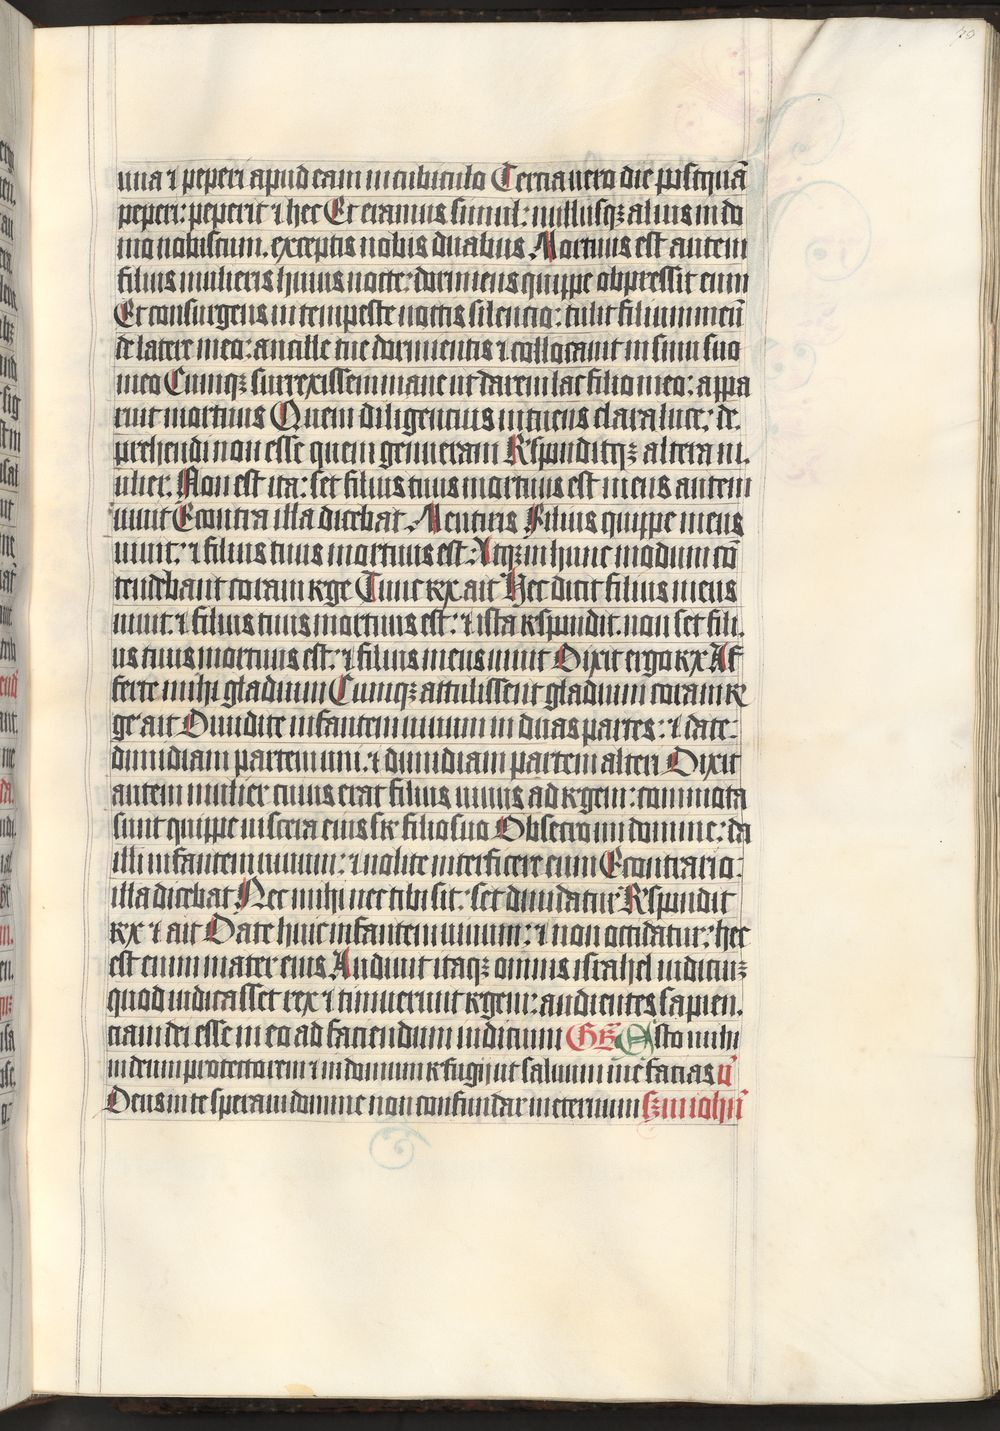 una ⁊ peperi apud eam in cubiculo Tercia vero die postquā
peperi: peperit ⁊ hec Et eramus simul: nullusqꝫ alius in do
mo nobiscum. exceptis nobis duabus. Mortuus est autem
filius mulieris huius nocte: dormiens quippe obpressit eum
Et consurgens intempeste noctis silencio: tulit filium meū
de latere meo: ancille tue dormientis ⁊ collocauit in sinu suo
meo Cumqꝫ surrexissem mane ut darem lac filio meo: appa
ruit mortuus Quem diligencius intuens clara luce: de.
prehendi non esse quem genueram Rˀsponditqꝫ altera m.
ulier. Non est ita: set filius tuus mortuus est meus autem
uiuit Econtra illa dicebat. Mentiris Filius quippe meus
uiuit: ⁊ filius tuus mortuus est: Atqꝫ in hunc modum cō
tendebant coram rege Tunc rex ait Hec dicit filius meus
uiuit: ⁊ filius tuus mortuus est: ⁊ ista rˀspondit. non set fili.
us tuus mortuus est: ⁊ filius meus uiuit Dixit ergo rex Af
ferte mihi gladium Cumqꝫ attulissent gladium coram re
ge ait Diuidite infantem uiuum in duas partes: ⁊ date:
dimidiam partem uni: ⁊ dimidiam partem alteri Dixit
autem mulier cuius erat filius uiuus ad regem: commota
sunt quippe uiscera eius sꝑ filio suo Obsecro mi domine: da
illi infantem uiuum: ⁊ nolite interficere eum Econtrario:
illa dicebat Nec mihi nec tibi sit: set diuidatur Rˀspondit
rex ⁊ ait Date huic infantem uiuum: ⁊ non occidatur: hec
est enim mater eius Audiuit itaqꝫ omnis israhel iudiciuꝫ
quod iudicasset rex ⁊ timuerunt regem: audientes sapien.
ciam dei esse in eo ad faciendum iudicium Gr̄ Esto mihi
in deum protectorem ⁊ in domum refugij ut saluum me facias v̄
Deus in te speraui domine non confundar in eternum